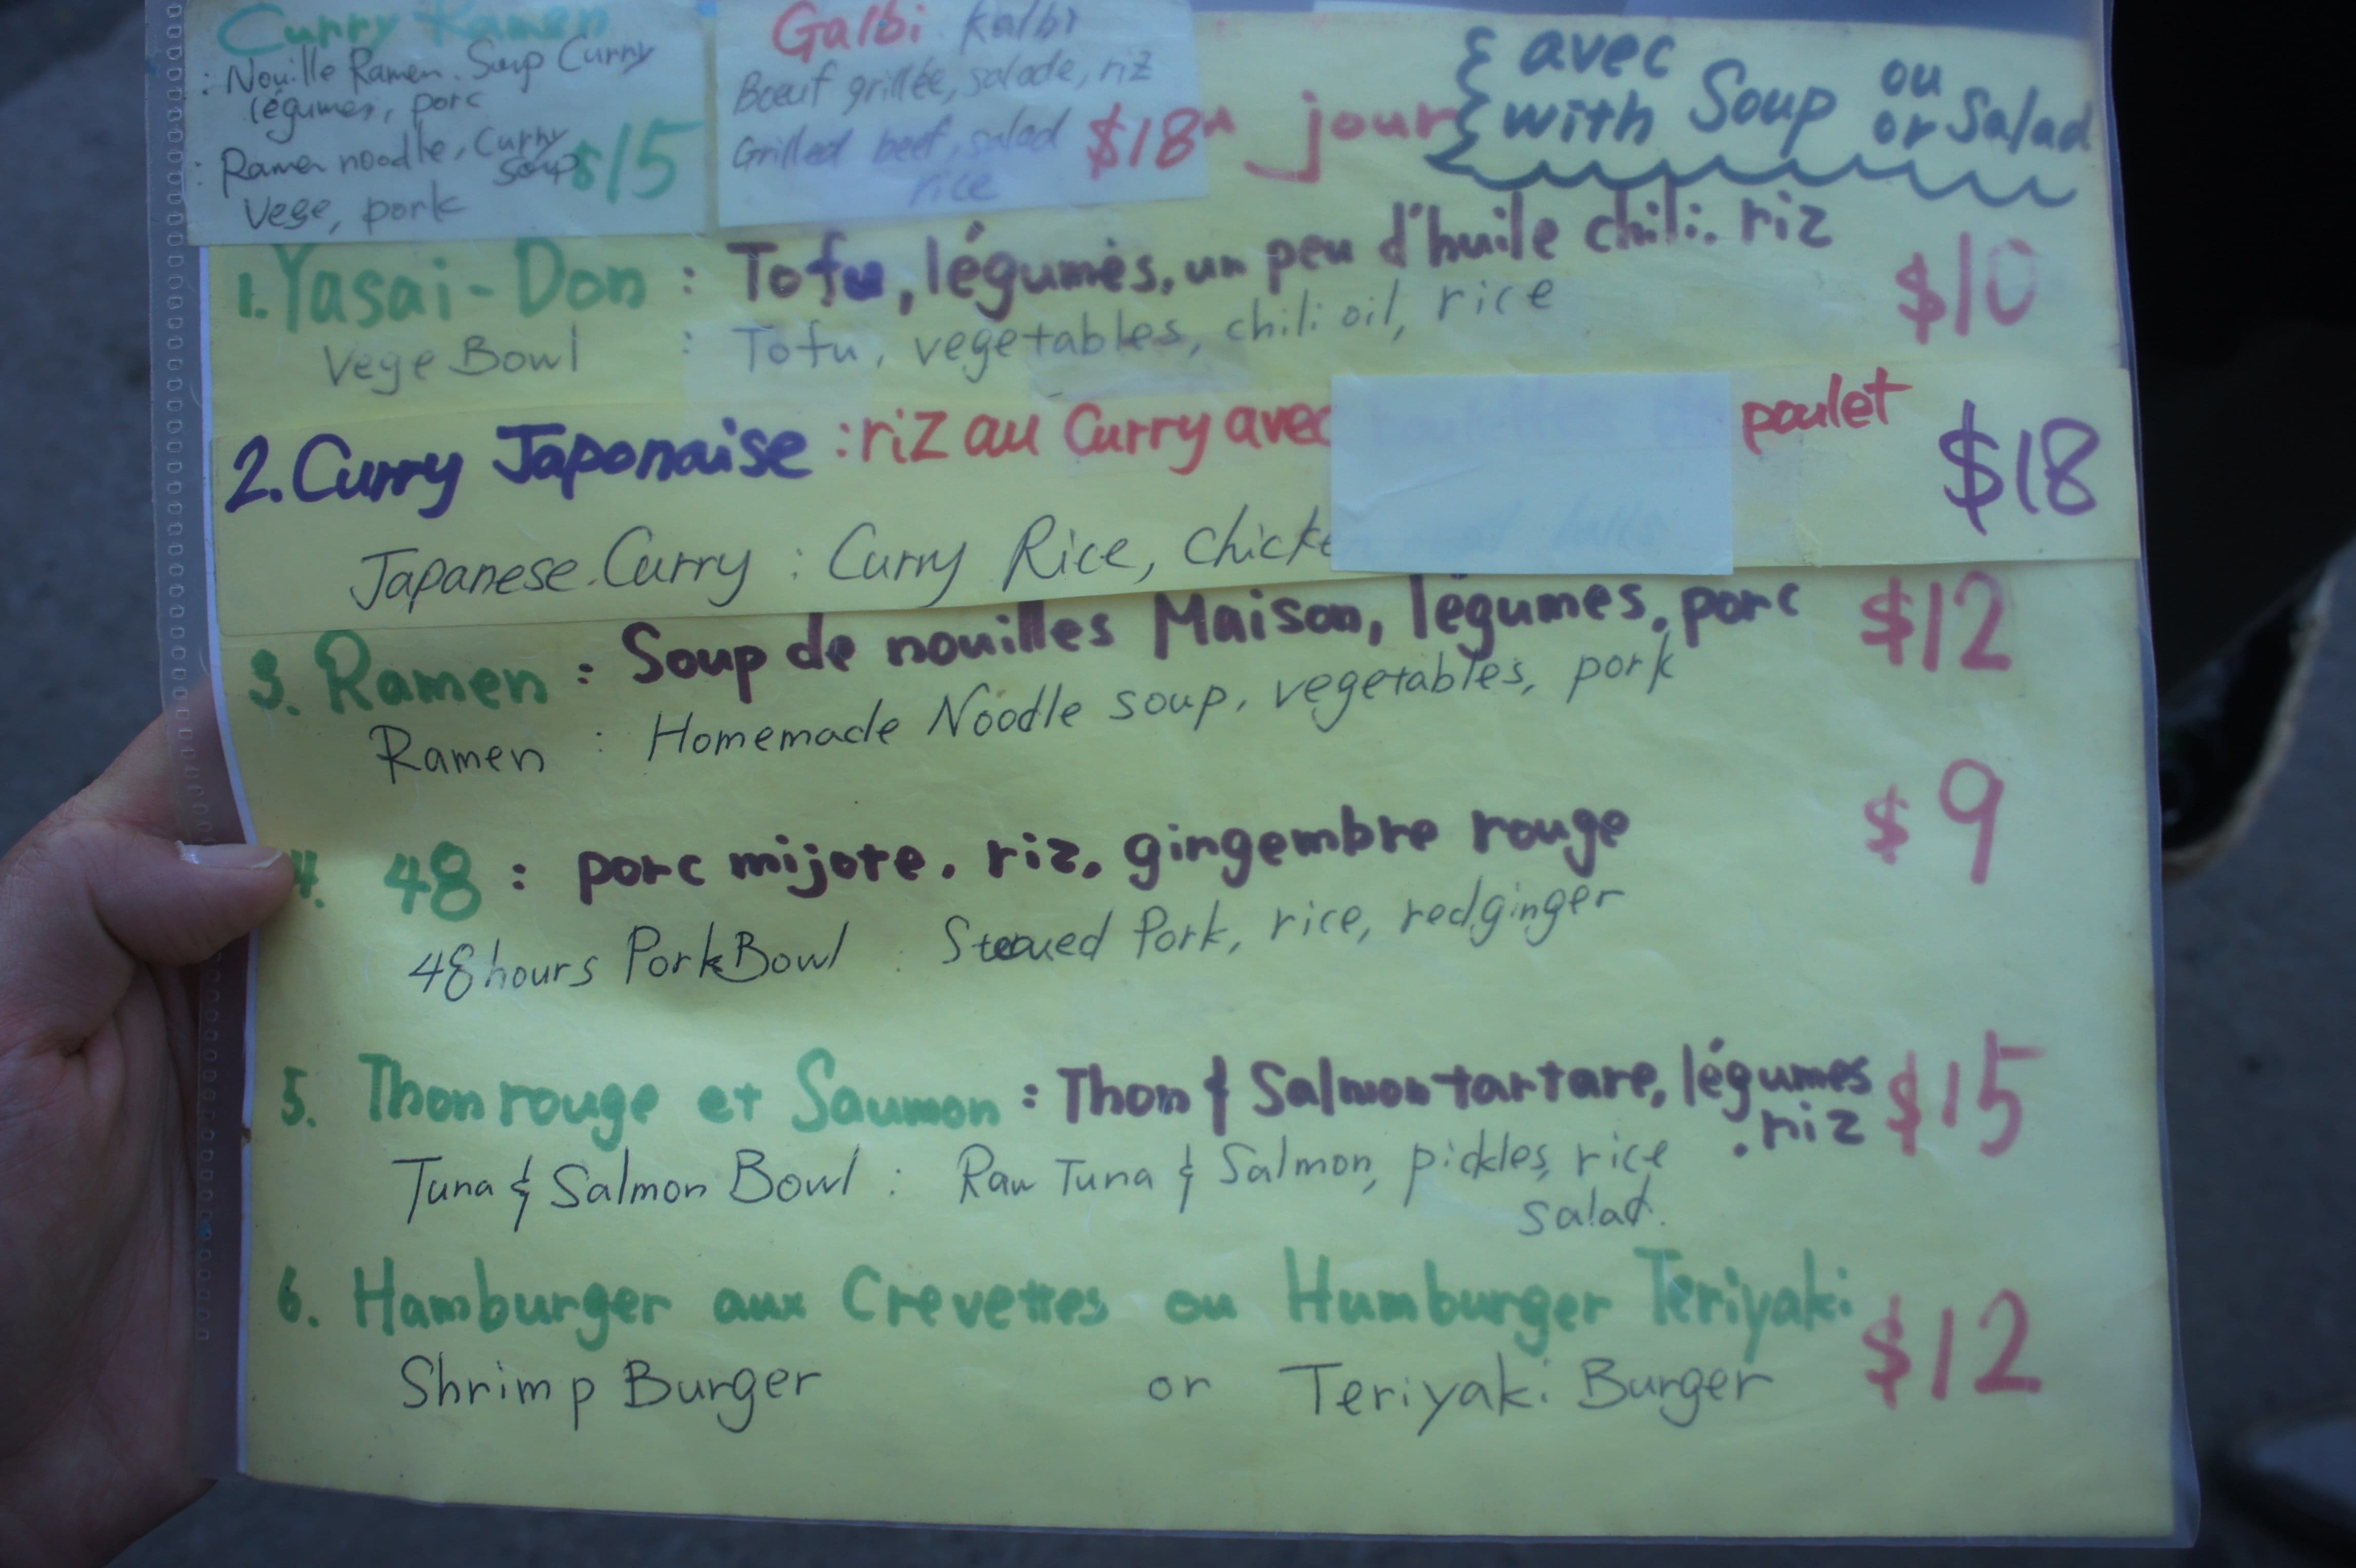 Curry Ramen
: Nouille Ramen. Soup Curry
légumes, porc
: Ramen noodle, Curry soup
Vege, pork
$15
Galbi kalbi
Bœuf grillée, salade, riz
Grilled beef, salad
rice
$18
jour
avec
with Soup ou
or Salad
1. Yasai-Don : Tofu, légumes, un peu d'huile chili. riz
$10
Vege Bowl : Tofu, vegetables, chili oil, rice
2. Curry Japonaise : riz au Curry avec poulet
$18
Japanese Curry : Curry Rice, Chicken
3. Ramen : Soup de nouilles Maison, légumes, porc
$12
Ramen : Homemade Noodle soup, vegetables, pork
4. 48 : porc mijote. riz. gingembre rouge
$9
48hours Pork Bowl : Steaued Pork, rice, red ginger
5. Thon rouge et Saumon : Thon & Salmon tartare, légumes
. riz
$15
Tuna & Salmon Bowl : Raw Tuna & Salmon, pickles, rice
salad.
6. Hamburger aux Crevettes ou Humburger Teriyaki
$12
Shrimp Burger or Teriyaki Burger